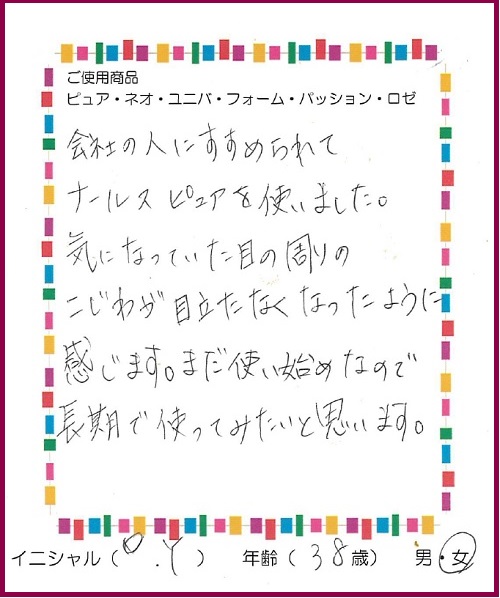 ご使用商品
ピュア・ネオ・ユニバ・フォーム・パッション・ロゼ
会社の人にすすめられて
ナールス ピュアを使いました。
気になっていた目の周りの
こじわが目立たなくなったように
感じます。まだ使い始めなので
長期で使ってみたいと思います。
イニシャル（O.Y） 年齢（38歳） 男・女